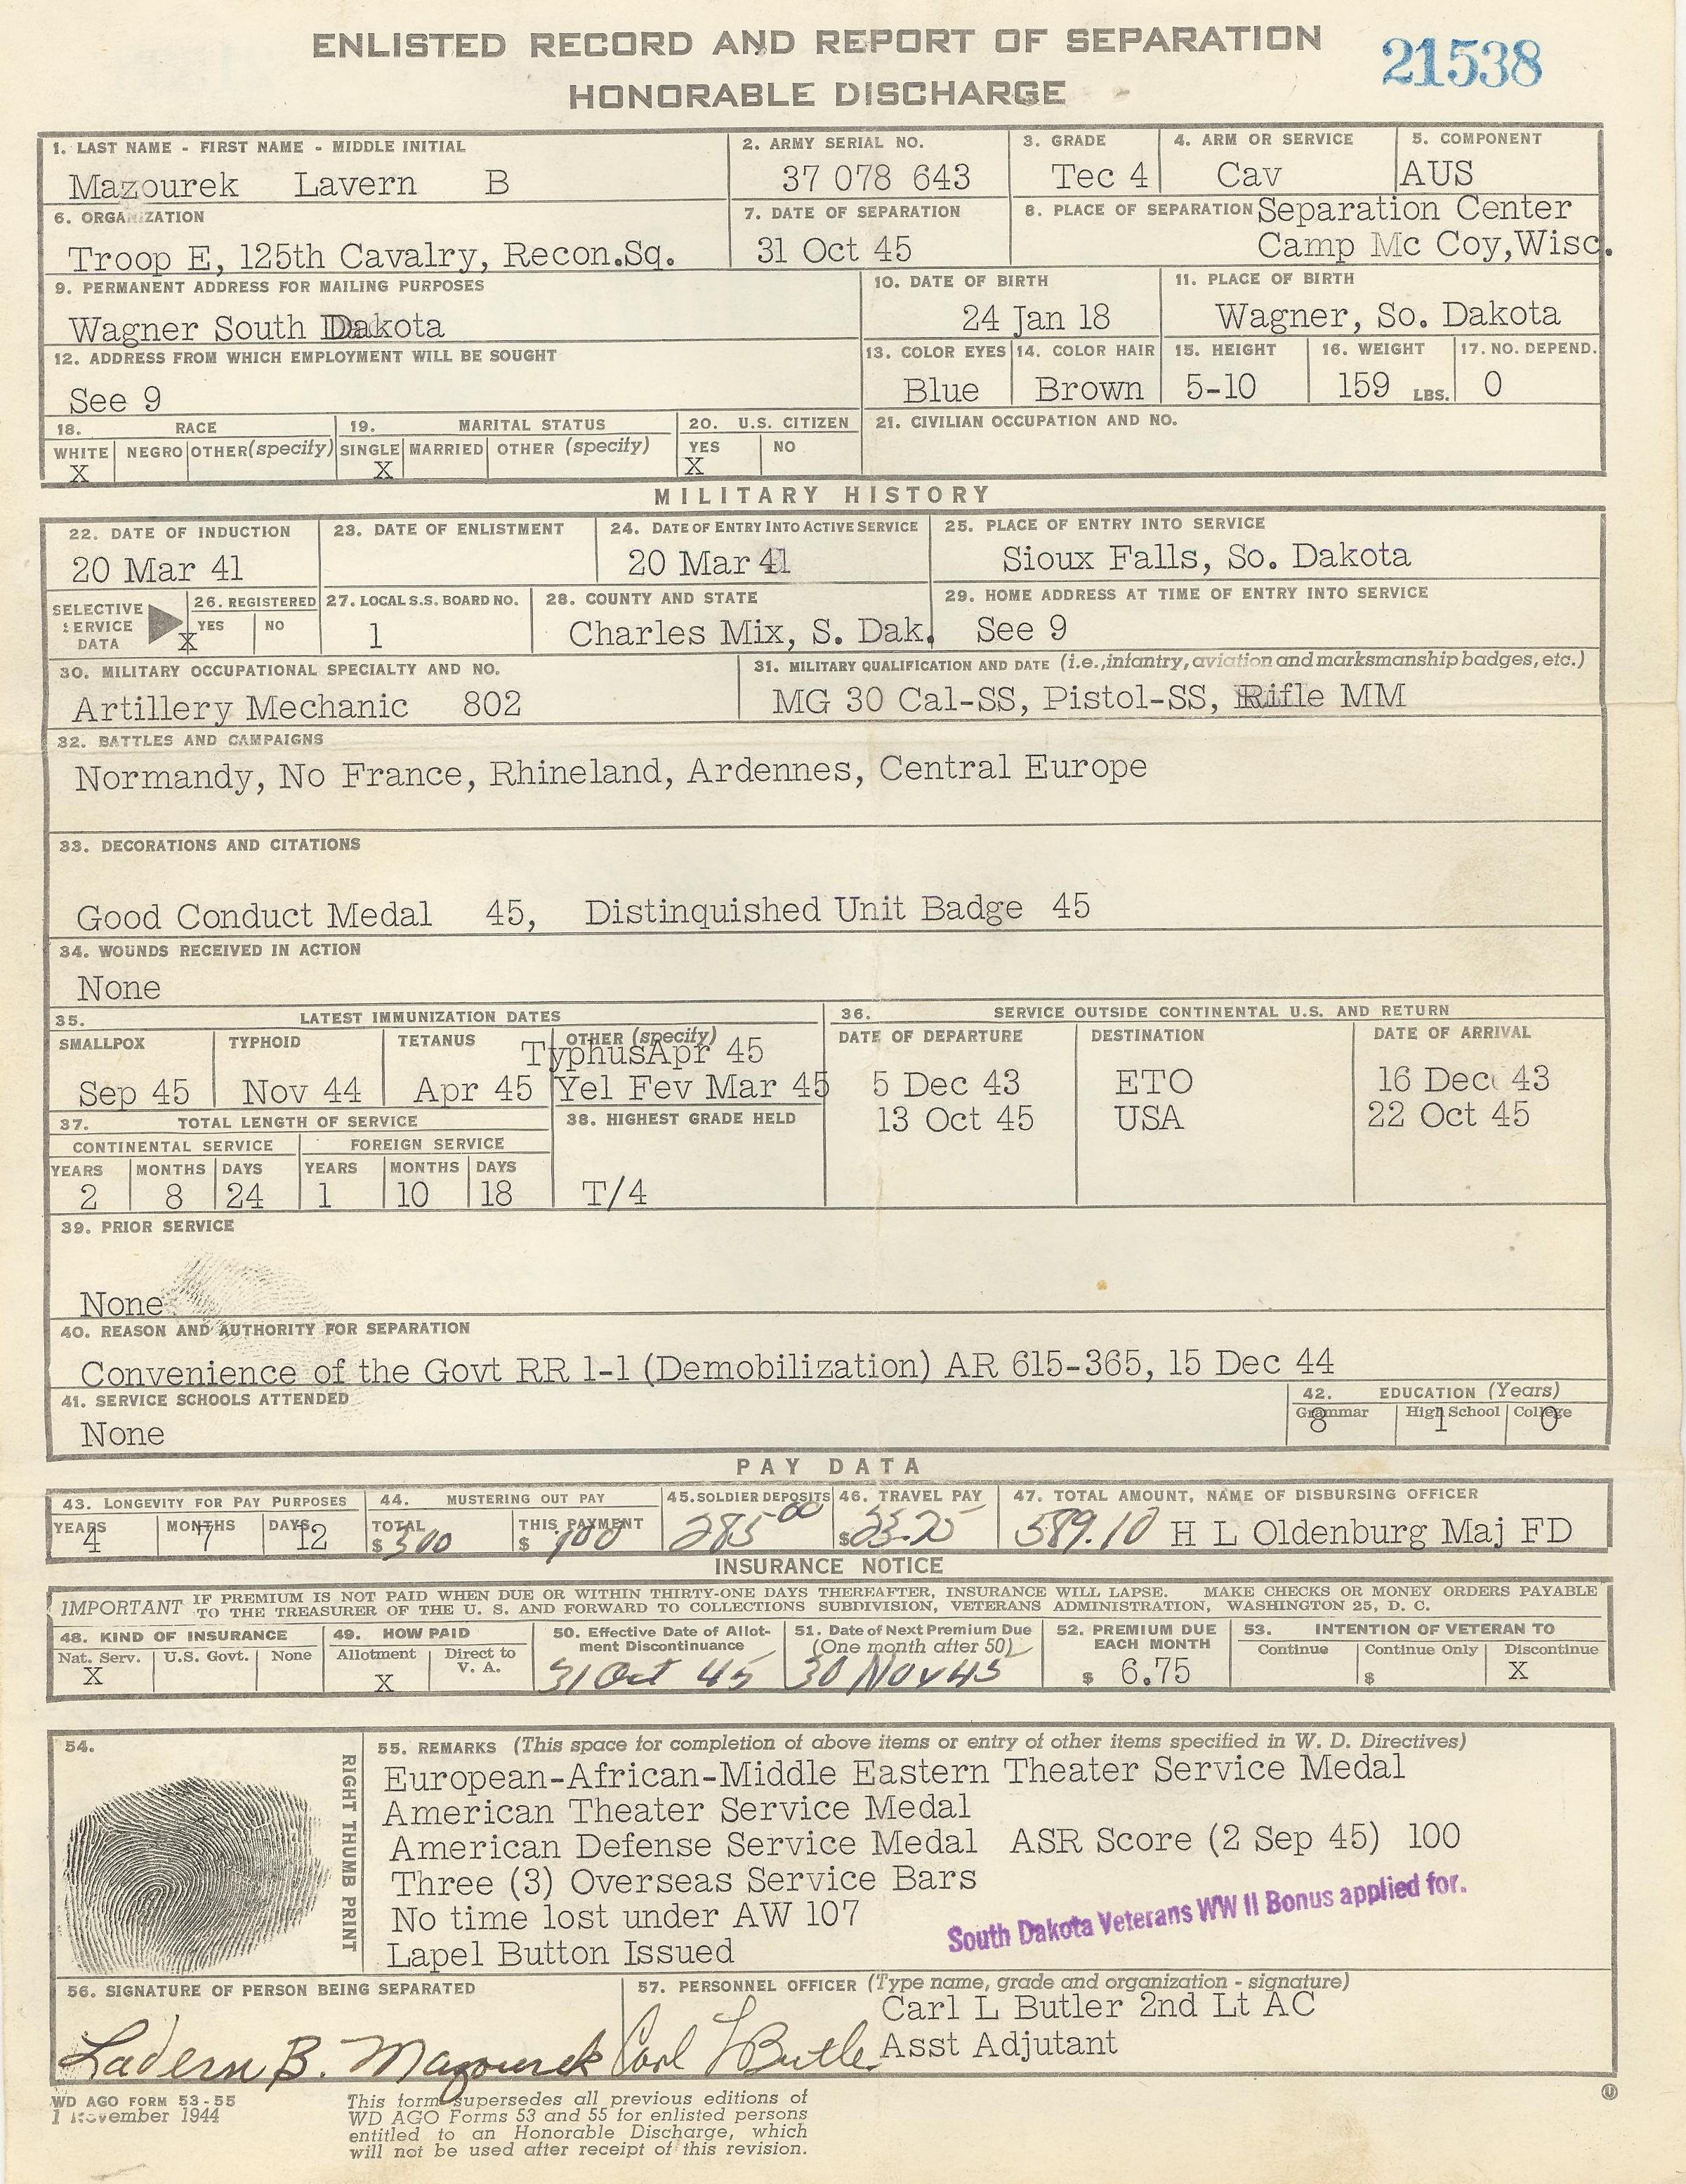 ENLISTED RECORD AND REPORT OF SEPARATION
21538
HONORABLE DISCHARGE
1. LAST NAME - FIRST NAME - MIDDLE INITIAL
Mazourek Lavern B
2. ARMY SERIAL NO.
37 078 643
3. GRADE
Tec 4
4. ARM OR SERVICE
Cav
5. COMPONENT
AUS
6. ORGANIZATION
Troop E, 125th Cavalry, Recon.Sq.
7. DATE OF SEPARATION
31 Oct 45
8. PLACE OF SEPARATION Separation Center
Camp Mc Coy,Wisc.
9. PERMANENT ADDRESS FOR MAILING PURPOSES
Wagner South Dakota
10. DATE OF BIRTH
24 Jan 18
11. PLACE OF BIRTH
Wagner, So. Dakota
12. ADDRESS FROM WHICH EMPLOYMENT WILL BE SOUGHT
See 9
13. COLOR EYES
Blue
14. COLOR HAIR
Brown
15. HEIGHT
5-10
16. WEIGHT
159 LBS.
17. NO. DEPEND.
0
18. RACE
WHITE NEGRO OTHER (specify)
X
19. MARITAL STATUS
SINGLE MARRIED OTHER (specify)
X
20. U.S. CITIZEN
YES NO
X
21. CIVILIAN OCCUPATION AND NO.
MILITARY HISTORY
22. DATE OF INDUCTION
20 Mar 41
23. DATE OF ENLISTMENT
24. DATE OF ENTRY INTO ACTIVE SERVICE
20 Mar 41
25. PLACE OF ENTRY INTO SERVICE
Sioux Falls, So. Dakota
SELECTIVE
SERVICE
DATA
26. REGISTERED
YES NO
X
27. LOCAL S.S. BOARD NO.
1
28. COUNTY AND STATE
Charles Mix, S. Dak.
29. HOME ADDRESS AT TIME OF ENTRY INTO SERVICE
See 9
30. MILITARY OCCUPATIONAL SPECIALTY AND NO.
Artillery Mechanic 802
31. MILITARY QUALIFICATION AND DATE (i.e., infantry, aviation and marksmanship badges, etc.)
MG 30 Cal-SS, Pistol-SS, Rifle MM
32. BATTLES AND CAMPAIGNS
Normandy, No France, Rhineland, Ardennes, Central Europe
33. DECORATIONS AND CITATIONS
Good Conduct Medal 45, Distinquished Unit Badge 45
34. WOUNDS RECEIVED IN ACTION
None
35. LATEST IMMUNIZATION DATES
SMALLPOX TYPHOID TETANUS OTHER (specify)
TyphusApr 45
Sep 45 Nov 44 Apr 45 Yel Fev Mar 45
36. SERVICE OUTSIDE CONTINENTAL U.S. AND RETURN
DATE OF DEPARTURE DESTINATION DATE OF ARRIVAL
5 Dec 43 ETO 16 Dec 43
13 Oct 45 USA 22 Oct 45
37. TOTAL LENGTH OF SERVICE
CONTINENTAL SERVICE FOREIGN SERVICE
YEARS MONTHS DAYS YEARS MONTHS DAYS
2 8 24 1 10 18
38. HIGHEST GRADE HELD
T/4
39. PRIOR SERVICE
None
40. REASON AND AUTHORITY FOR SEPARATION
Convenience of the Govt RR 1-1 (Demobilization) AR 615-365, 15 Dec 44
41. SERVICE SCHOOLS ATTENDED
None
42. EDUCATION (Years)
Grammar High School College
8 1 0
PAY DATA
43. LONGEVITY FOR PAY PURPOSES
YEARS MONTHS DAYS
4 7 12
44. MUSTERING OUT PAY
TOTAL THIS PAYMENT
$ 300 $ 100
45. SOLDIER DEPOSITS
285 00
46. TRAVEL PAY
$ 23.25
47. TOTAL AMOUNT, NAME OF DISBURSING OFFICER
589.10 H L Oldenburg Maj FD
INSURANCE NOTICE
IMPORTANT
IF PREMIUM IS NOT PAID WHEN DUE OR WITHIN THIRTY-ONE DAYS THEREAFTER, INSURANCE WILL LAPSE. MAKE CHECKS OR MONEY ORDERS PAYABLE
TO THE TREASURER OF THE U. S. AND FORWARD TO COLLECTIONS SUBDIVISION, VETERANS ADMINISTRATION, WASHINGTON 25, D. C.
48. KIND OF INSURANCE
Nat. Serv. U.S. Govt. None
X
49. HOW PAID
Allotment Direct to
V. A.
X
50. Effective Date of Allot-
ment Discontinuance
31 Oct 45
51. Date of Next Premium Due
(One month after 50)
30 Nov 45
52. PREMIUM DUE
EACH MONTH
$ 6.75
53. INTENTION OF VETERAN TO
Continue Continue Only Discontinue
$ X
54.
RIGHT THUMB PRINT
55. REMARKS (This space for completion of above items or entry of other items specified in W. D. Directives)
European-African-Middle Eastern Theater Service Medal
American Theater Service Medal
American Defense Service Medal ASR Score (2 Sep 45) 100
Three (3) Overseas Service Bars
No time lost under AW 107
Lapel Button Issued
South Dakota Veterans WW II Bonus applied for.
56. SIGNATURE OF PERSON BEING SEPARATED
LaVern B. Mazourek
57. PERSONNEL OFFICER (Type name, grade and organization - signature)
Carl L Butler
Carl L Butler 2nd Lt AC
Asst Adjutant
WD AGO FORM 53-55
1 November 1944
This form supersedes all previous editions of
WD AGO Forms 53 and 55 for enlisted persons
entitled to an Honorable Discharge, which
will not be used after receipt of this revision.